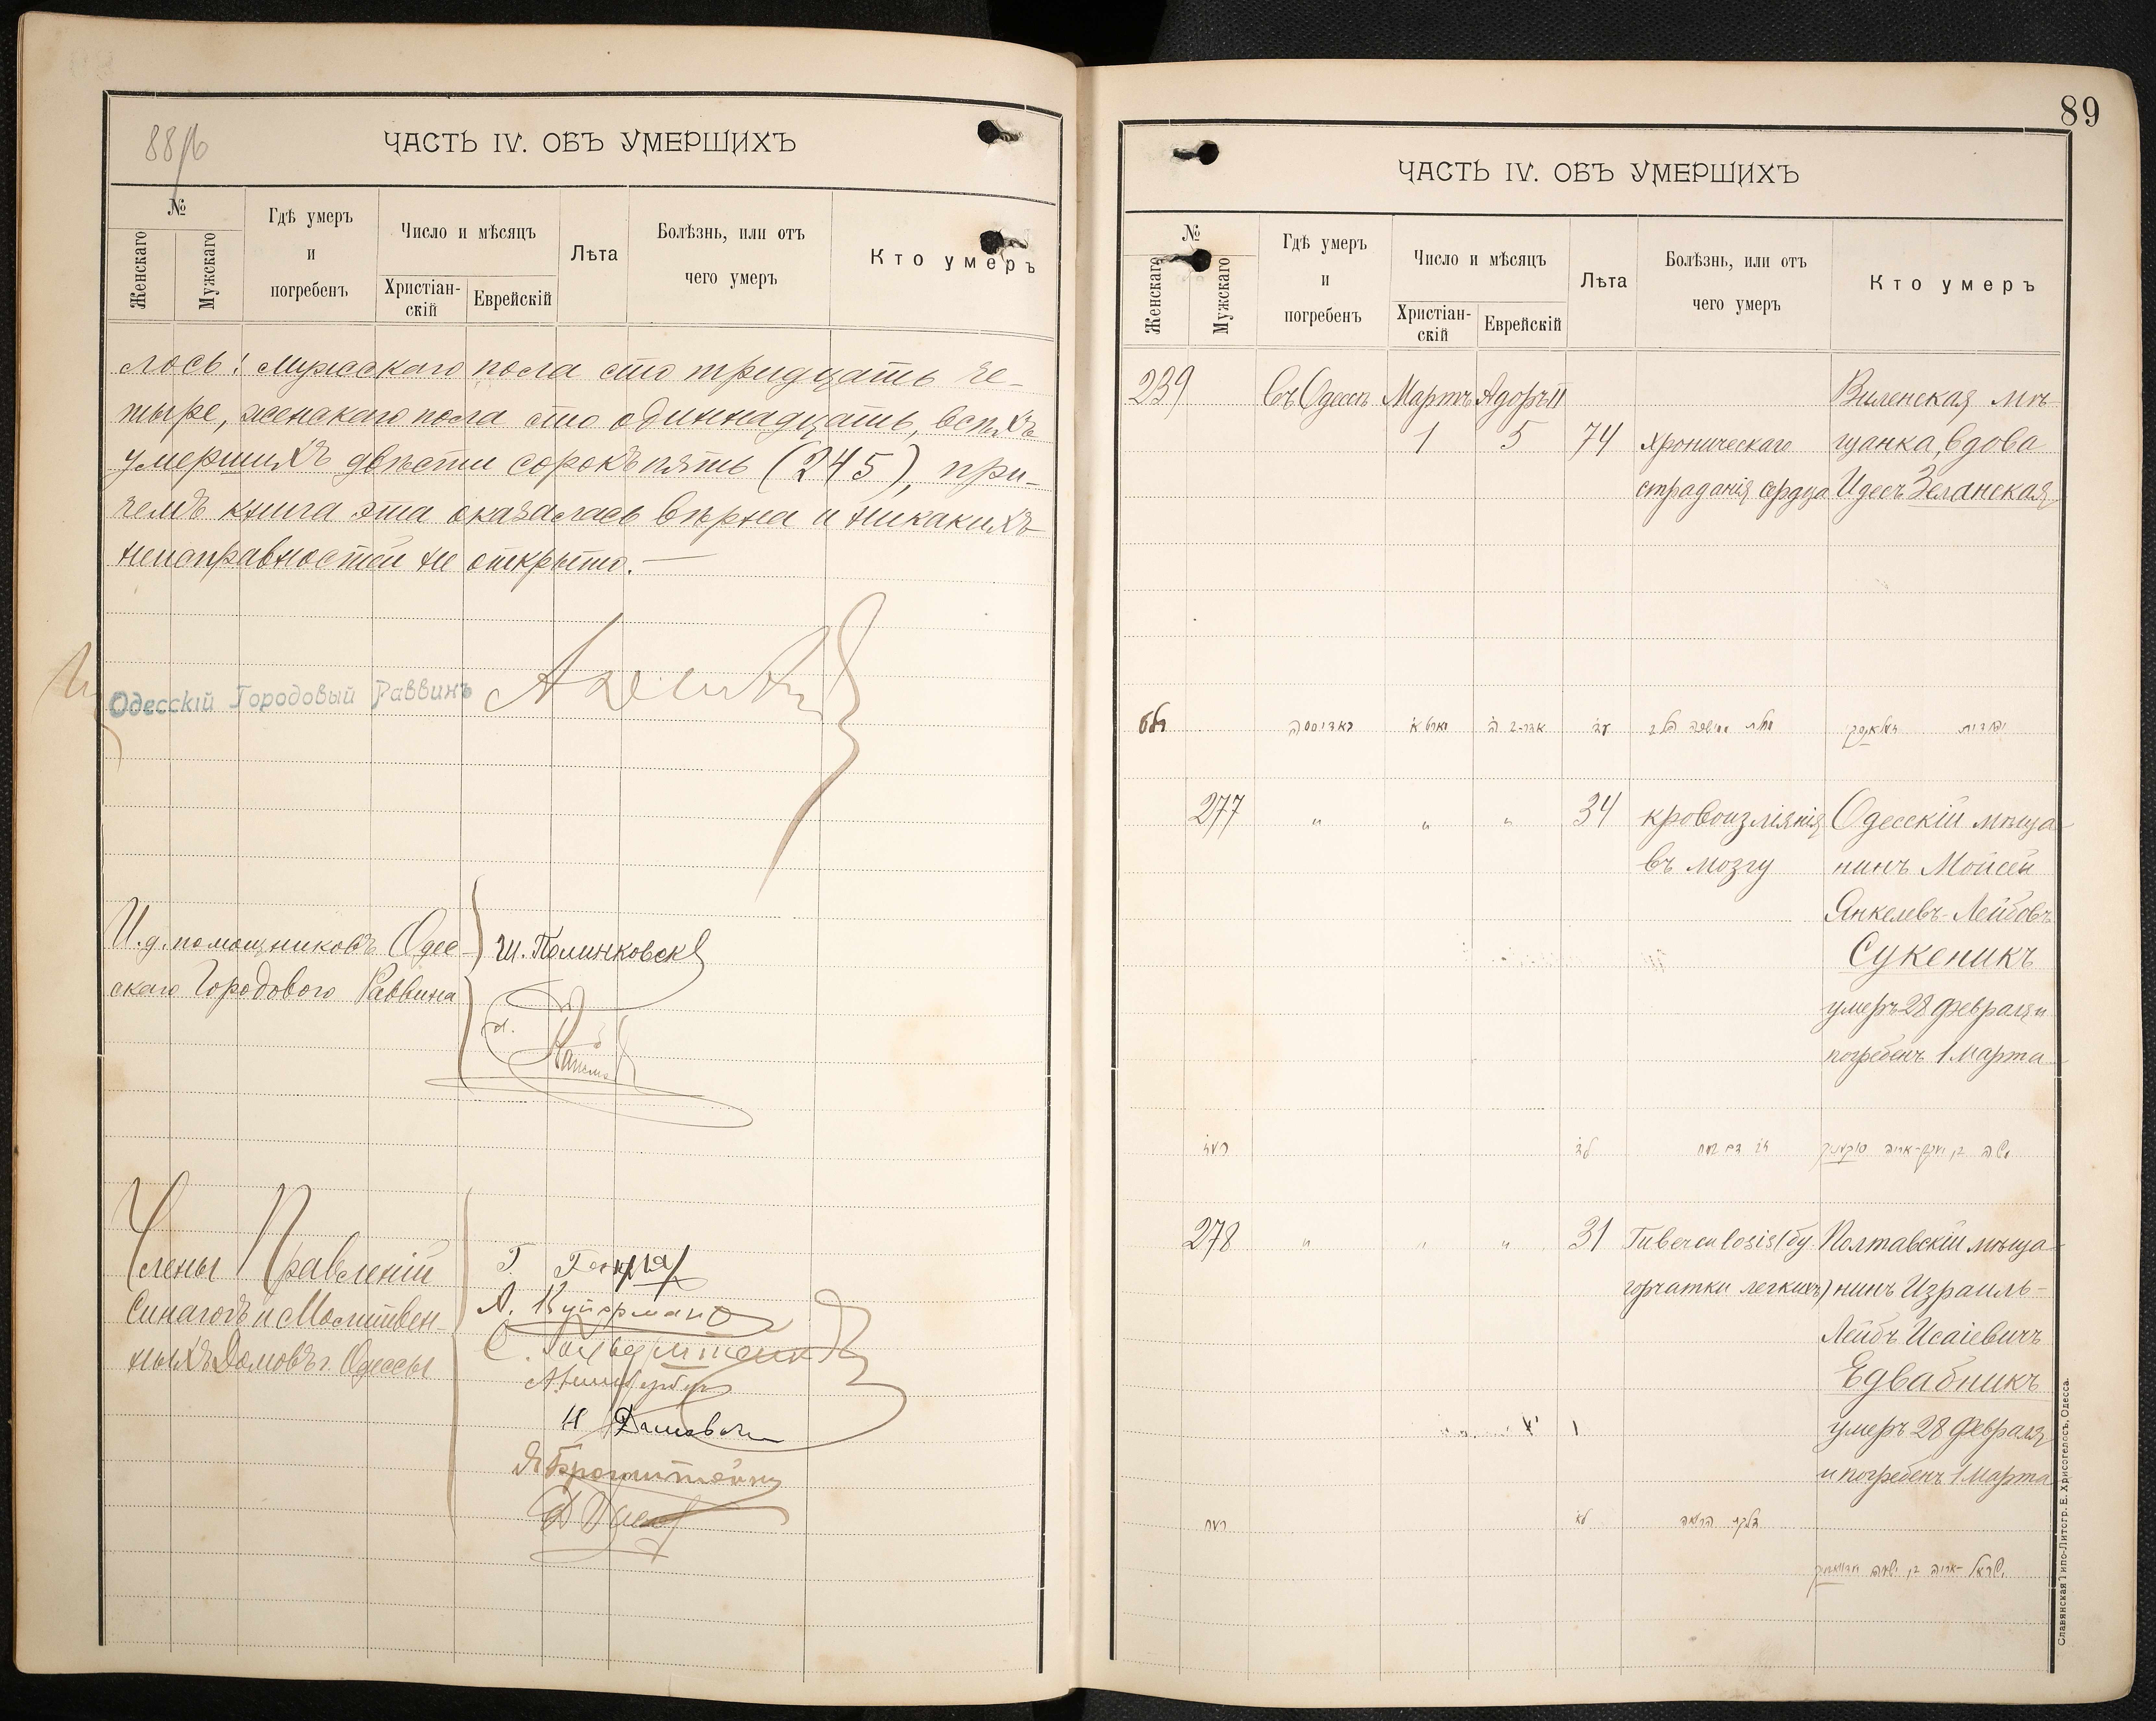 88/б
ЧАСТЬ IV. ОБЪ УМЕРШИХЪ
№
Женскаго
Мужскаго
Гдѣ умеръ
и
погребенъ
Число и мѣсяцъ
Христіан-
скій
Еврейскій
Лѣта
Болѣзнь, или отъ
чего умеръ
Кто умеръ
лось: мужескаго пола сто тридцать че-
тыре, женскаго пола сто одиннадцать, всѣхъ
умершихъ двѣсти сорокъ пять (245), при-
чемъ книга эта оказалась вѣрна и никакихъ
неисправностей не открыто.—
Одесскій Городовый Раввинъ
И. д. помощниковъ Одес-
скаго Городового Раввина
Ш. Полинковск
Члены Правленій
Синагогъ и Молитвен-
ныхъ Домовъ г. Одессы
Г.
А. Куперманъ
С.
Н
Я Бронштейнъ
89
ЧАСТЬ IV. ОБЪ УМЕРШИХЪ
№
Женскаго
Мужскаго
Гдѣ умеръ
и
погребенъ
Число и мѣсяцъ
Христіан-
скій
Еврейскій
Лѣта
Болѣзнь, или отъ
чего умеръ
Кто умеръ
239 Въ Одессѣ Мартъ Адоръ II Виленская мѣ-
1 5 74 хроническаго щанка, вдова
страданія сердца Идесъ Зеланская
רלט באדיססה מארט א אדר-ב ה עד
277 " " " 34 кровоизліянія Одесскій мѣща-
въ мозгу нинъ Мойсей
Янкелевъ-Лейбовъ
Сукеникъ
умеръ 28 февраля и
погребенъ 1 Марта
רעז לד משה בן יעקב-אריה סוקעניק
278 " " " 31 Tuberculosis (бу- Полтавскій мѣща-
горчатки легкихъ) нинъ Израиль-
Лейбъ Исаіевичъ
Едвабникъ
умеръ 28 февраля
и погребенъ 1 Марта
רעח לא
ישראל-אריה בן ישעיה
Славянская Типо-Литогр. Е. Хрисогелосъ, Одесса.